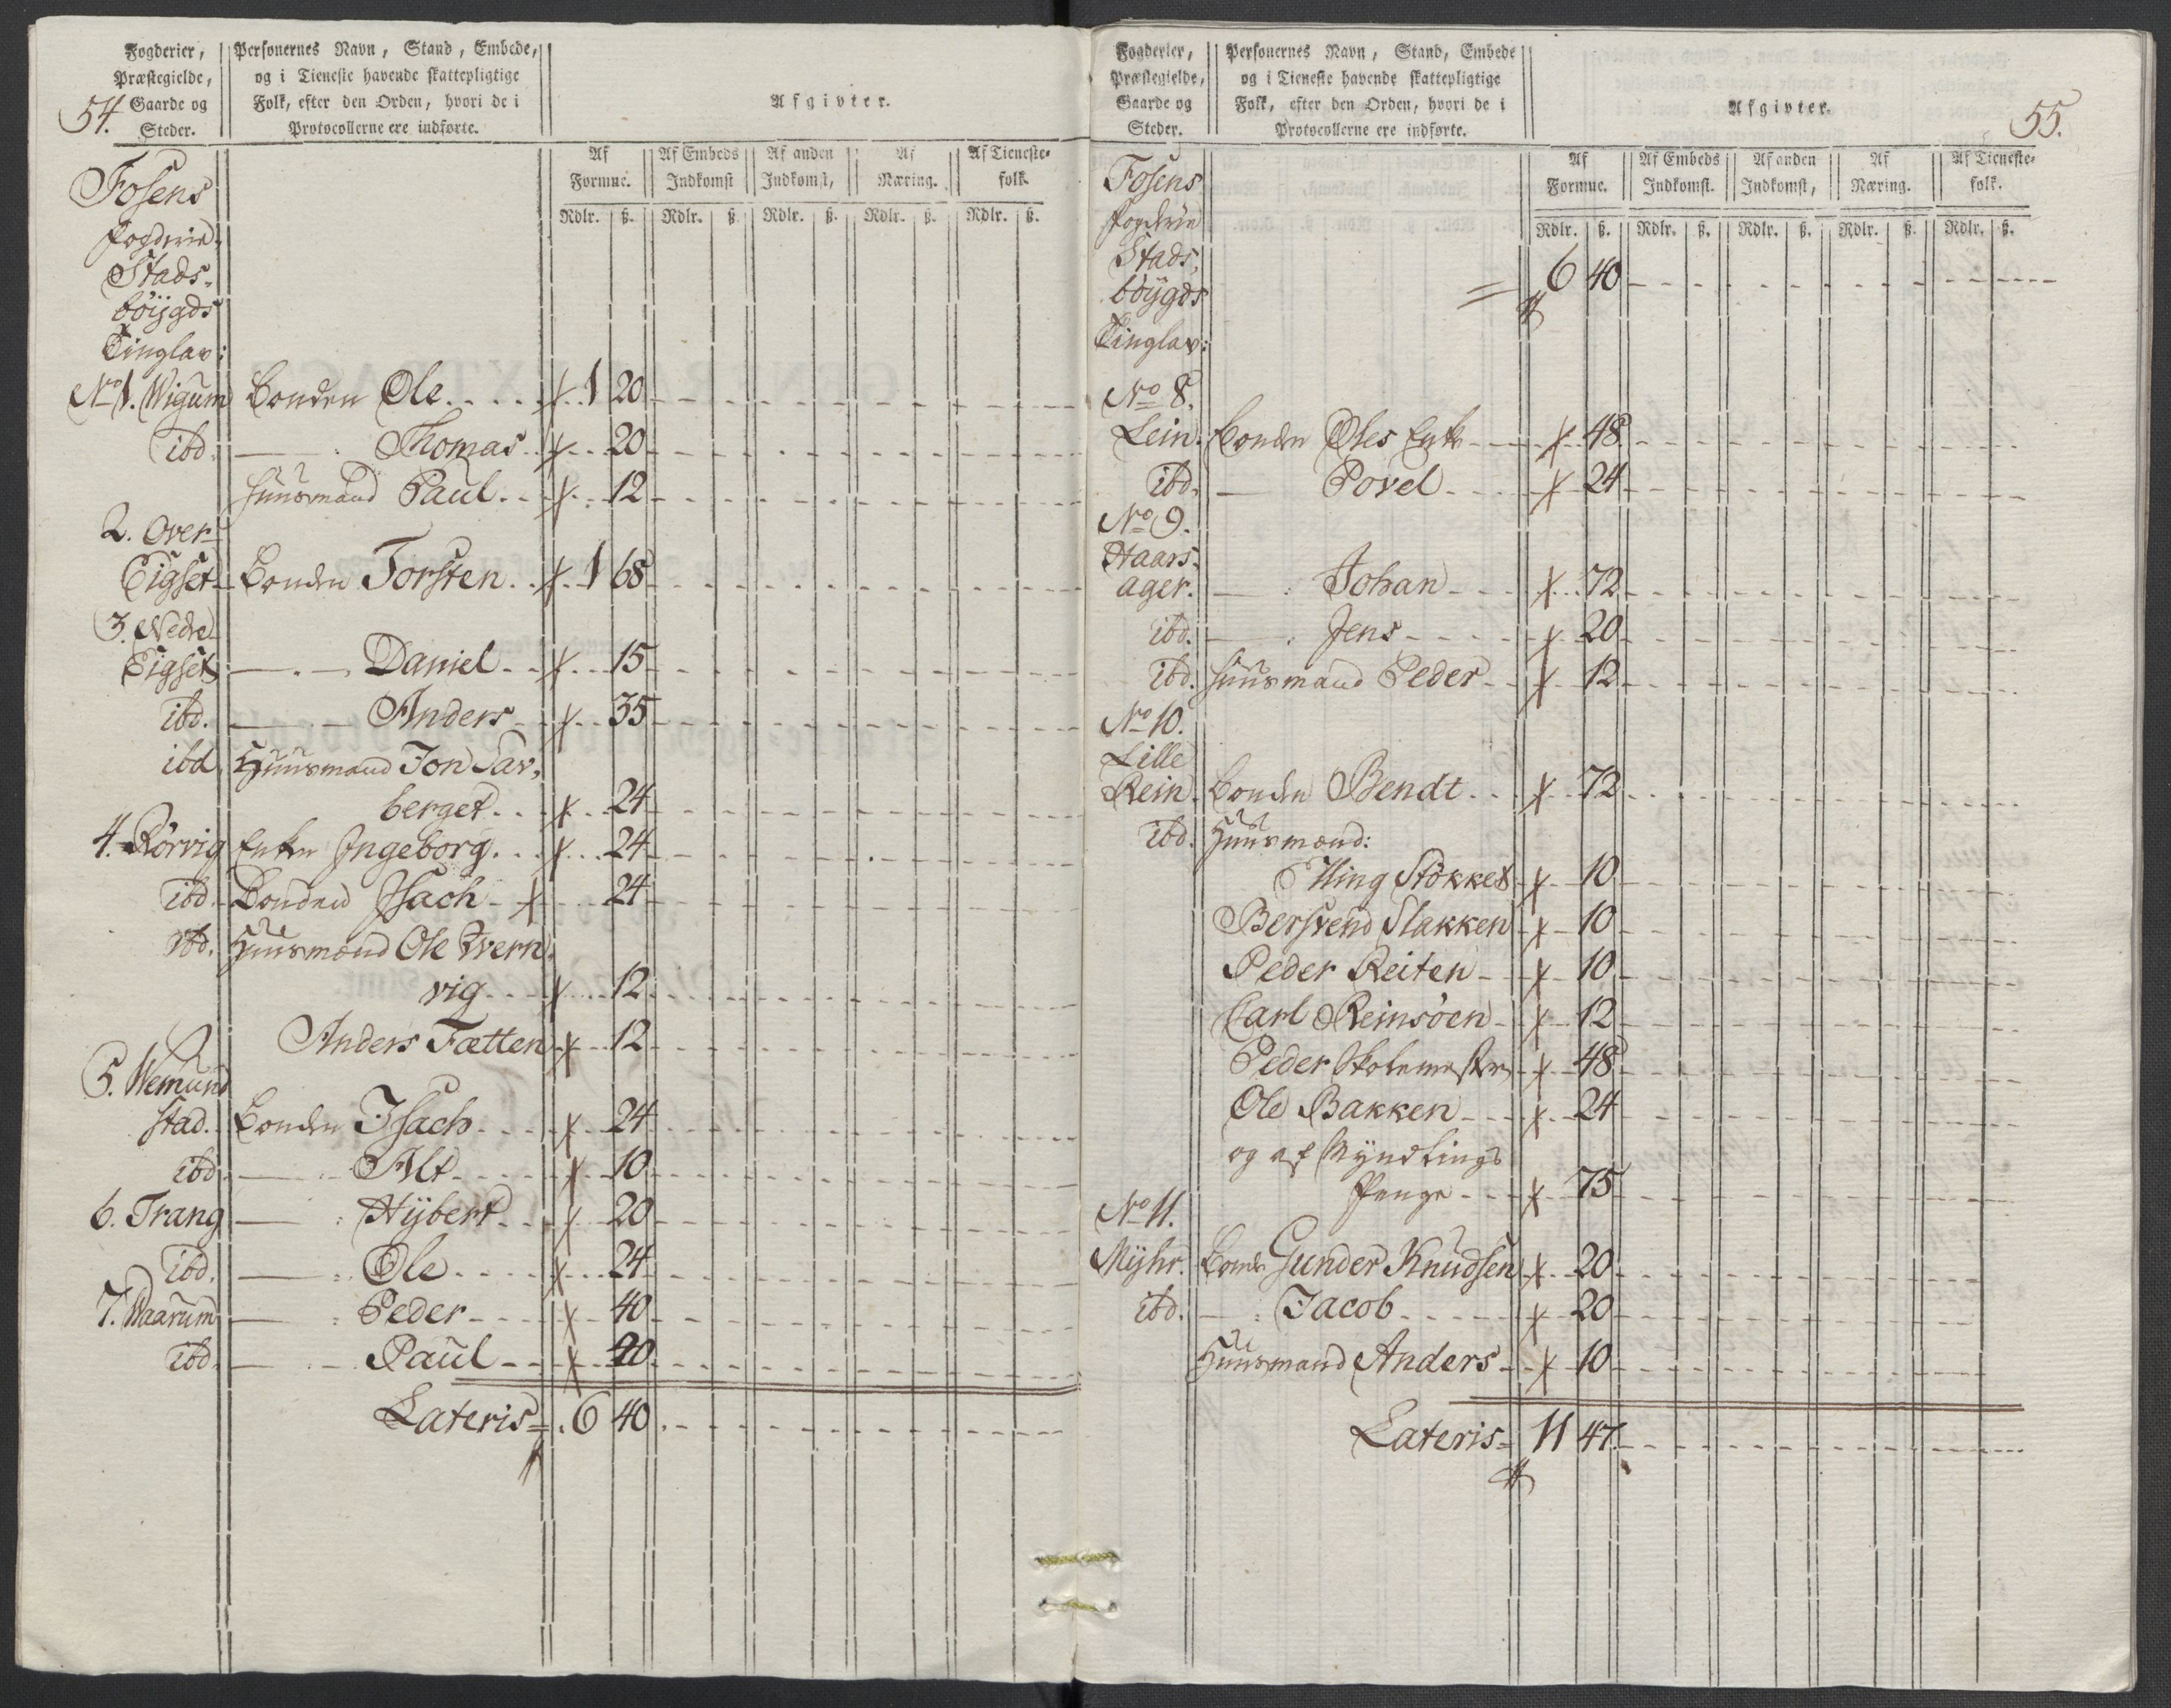 54.
Fogderier, Præstegielde, Gaarde og Steder.
Personernes Navn, Stand, Embede, og i Tieneste havende skattepligtige Folk, efter den Orden, hvori de i Protocollerne ere indførte.
Afgivter.
Af Formue. Af Embeds Indkomst Af anden Indkomst, Af Næring. Af Tieneste-folk.
Rdlr. ß. Rdlr. ß. Rdlr. ß. Rdlr. ß. Rdlr. ß.
Fosens
Fogderie.
Stads-
böijgds
Tinglav:
No 1. Wigum Bonden Ole 1 20
ibd. — Thomas 20
Huusmand Paul 12
2. Over-
Eigset Bonden Torsten 1 68
3. Nedre
Eigset — Daniel 15
ibd. — Anders 35
ibd. Huusmand Jon Sav-
berget 24
4. Rörvig Enken Ingeborg 24
ibd. Bonden Isach 24
ibd. Huusmand Ole Tvern
vig 12
Anders Fætten 12
5. Wemund
stad. Bonden Isach 24
ibd. — Alt 10
6. Trang — Hÿbert 20
ibd. — Ole 24
7. Waarum — Peder 40
ibd. — Paul 20
Lateris = 6 40
55.
Fogderier, Præstegielde, Gaarde og Steder.
Personernes Navn, Stand, Embede og i Tieneste havende skattepligtige Folk, efter den Orden, hvori de i Protocollerne ere indførte.
Afgivter.
Af Formue. Af Embeds Indkomst. Af anden Indkomst, Af Næring. Af Tieneste-folk.
Rdlr. ß. Rdlr. ß. Rdlr. ß. Rdlr. ß. Rdlr. ß.
Fosens
Fogderie
Stads,
böijgds = 6 40
Tinglav:
No 8.
Lein. Bonden Oles Enke 48
ibd. — Povel 24
No 9.
Haars-
ager. — Johan 72
ibd. — Jens 20
ibd. Huusmand Peder 12
No 10.
Lille
Rein. Bonden Bendt 72
ibd. Huusmænd:
Iling Stökket 10
Bersvend Slakken 10
Peder Reiten 10
Carl Reinsöen 12
Peder Skolemester 48
Ole Bakken 24
og af Myndlings
Penge 75
No 11.
Mijhr. Bonde Gunder Knudsen 20
ibd. — Jacob 20
Huusmand Anders 10
Lateris = 11 47